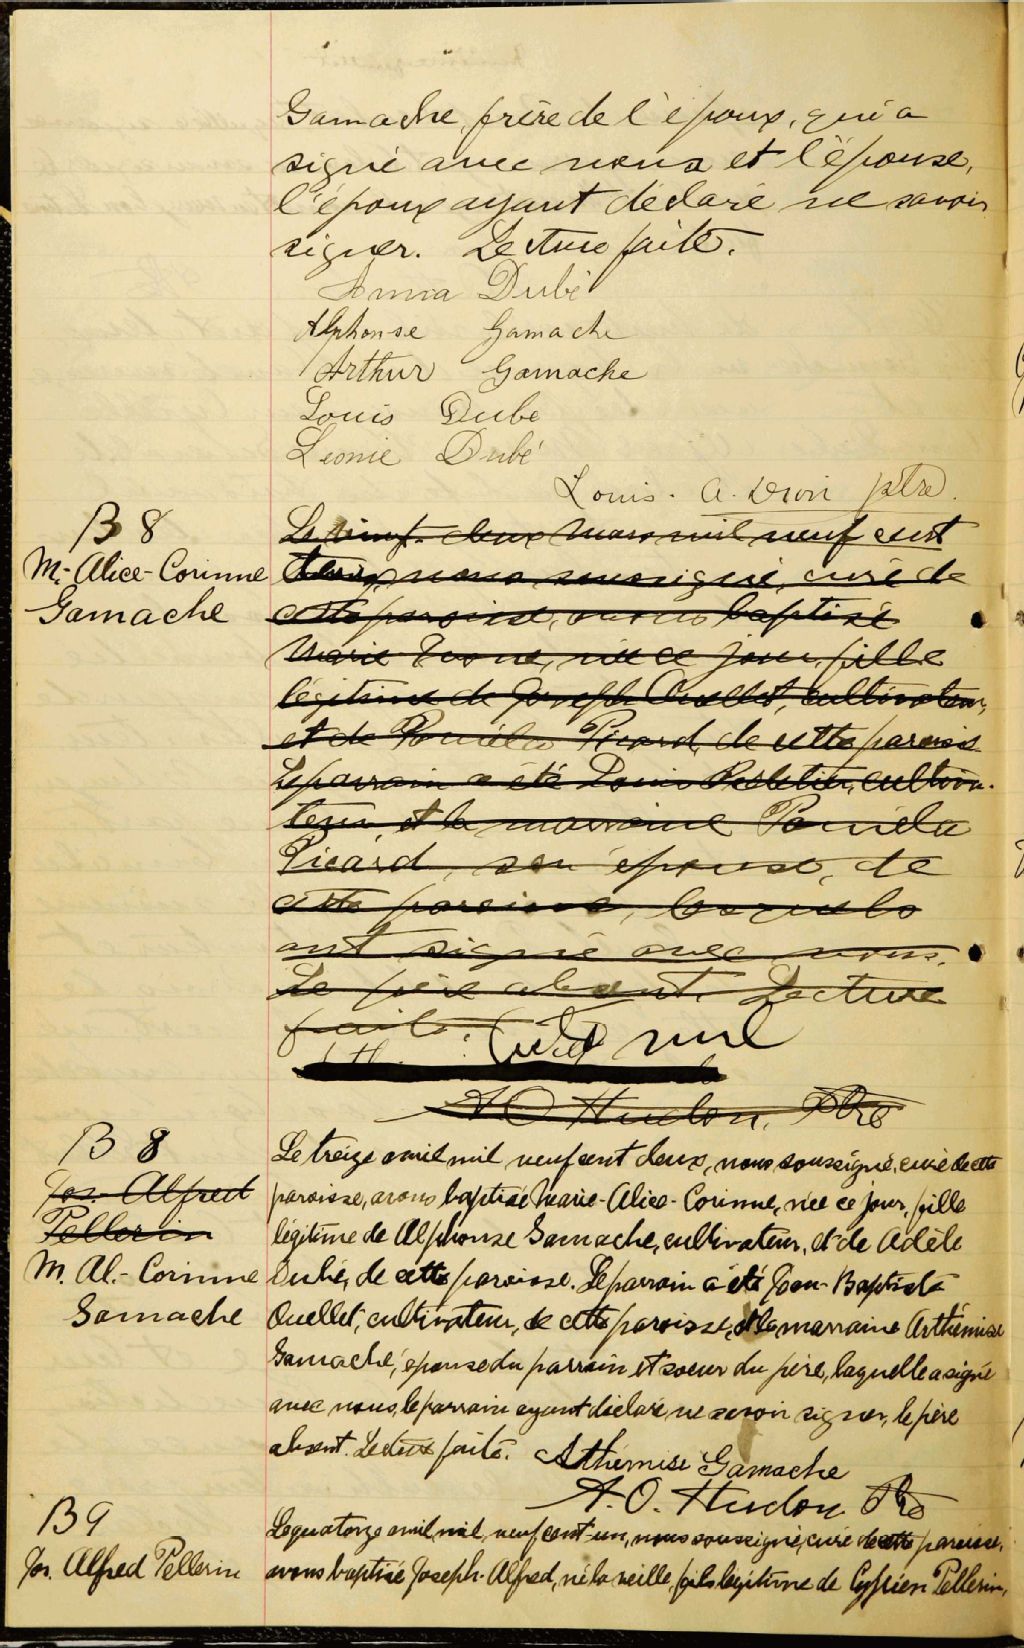 Gamache, frère de l'époux, qui a
signé avec nous et l'épouse,
l'époux ayant déclaré ne savoir
signer. Lecture faite.
Anna Dubé
Alphonse Gamache
Arthur Gamache
Louis Dube
Leonie Dubé
Louis. A. Dion ptre.
B 8
M.-Alice-Corinne
Gamache
Le vingt-deux mars mil neuf cent
deux, nous soussigné, curé de
cette paroisse, avons baptisé
Marie née ce jour, fille
légitime de Joseph Ouellet, cultivateur,
et de Paméla Picard, de cette paroisse
Le parrain a été Pelletier, cultiva-
teur, et la marraine Paméla
Picard, son épouse, de
cette paroisse, lesquels
ont signé avec nous.
Le père absent. Lecture
faite. nul
A O Hudon, Ptre
B 8
Jos. Alfred
Pellerin
M. Al.- Corinne
Gamache
Le treize avril mil neuf cent deux, nous soussigné, curé de cette
paroisse, avons baptisé Marie-Alice-Corinne, née ce jour, fille
légitime de Alphonse Gamache, cultivateur, et de Adèle
Dubé, de cette paroisse. Le parrain a été Jean-Baptiste
Ouellet, cultivateur, de cette paroisse, et la marraine Arthémise
Gamache, épouse du parrain et soeur du père, laquelle a signé
avec nous, le parrain ayant déclaré ne savoir signer, le père
absent. Lecture faite. Arthémise Gamache
A. O. Hudon Ptre
B 9
Jos. Alfred Pellerin
Le quatorze avril mil neuf cent un, nous soussigné, curé de cette paroisse,
avons baptisé Joseph-Alfred, né la veille, fils légitime de Cyprien Pellerin,